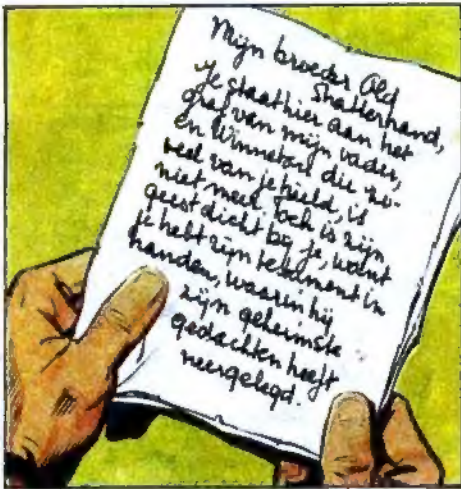 Mijn broeder Old
Shatterhand,
Je staat hier aan het
graf van mijn vader,
en Winnetou die zo-
veel van je hield, is
niet meer. Toch is zijn
geest dicht bij je, want
je hebt zijn testament in
handen, waarin hij
zijn geheimste
gedachten heeft
neergelegd.